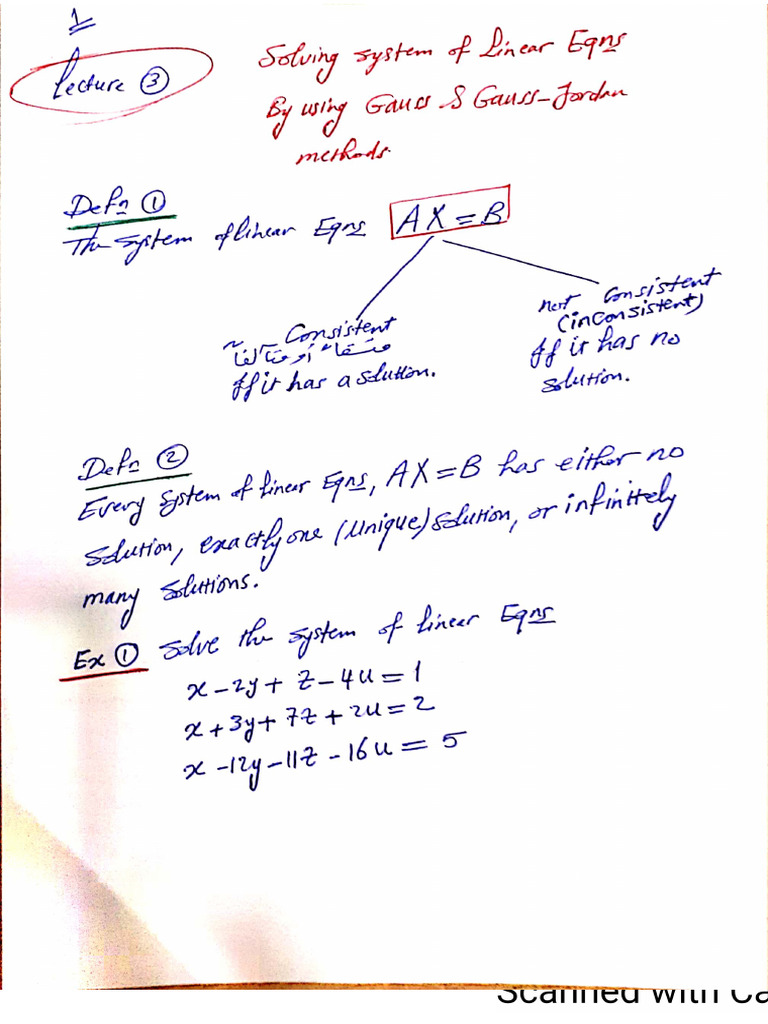 1
Lecture ③
Solving system of Linear Eqns
By using Gauss & Gauss-Jordan
methods.
Defn ①
The system of linear Eqns AX = B
Consistent
متسقاً أو متآلفاً
If it has a solution.
not Consistent
(inconsistent)
If it has no
solution.
Defn ②
Every system of linear Eqns, AX = B has either no
solution, exactly one (Unique) solution, or infinitely
many solutions.
Ex ① Solve the system of linear Eqns
x - 2y + z - 4u = 1
x + 3y + 7z + 2u = 2
x - 12y - 11z - 16u = 5
Scanned with Ca